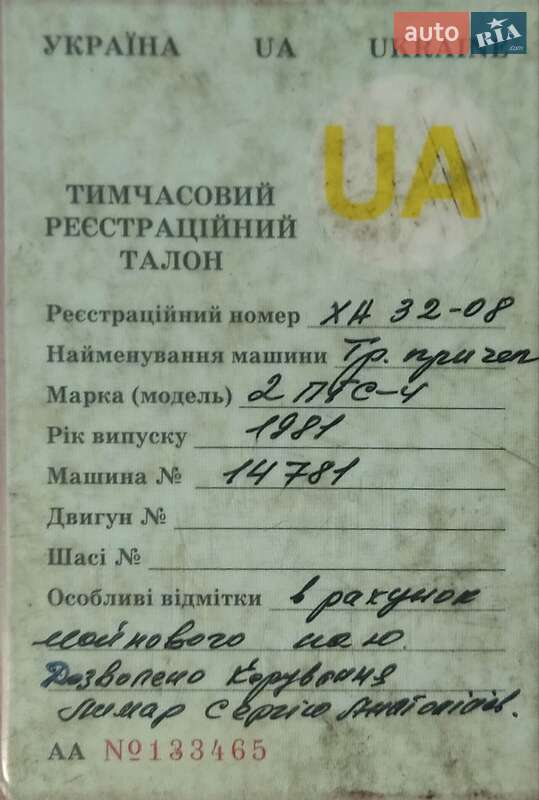 auto RIA.com
УКРАЇНА UA UKRAINE
UA
ТИМЧАСОВИЙ
РЕЄСТРАЦІЙНИЙ
ТАЛОН
Реєстраційний номер ХА 32-08
Найменування машини Тр. причеп
Марка (модель) 2 ПТС-4
Рік випуску 1981
Машина № 14781
Двигун №
Шасі №
Особливі відмітки в рахунок
майнового паю.
Дозволено Керування
Лимар Сергію
АА №133465